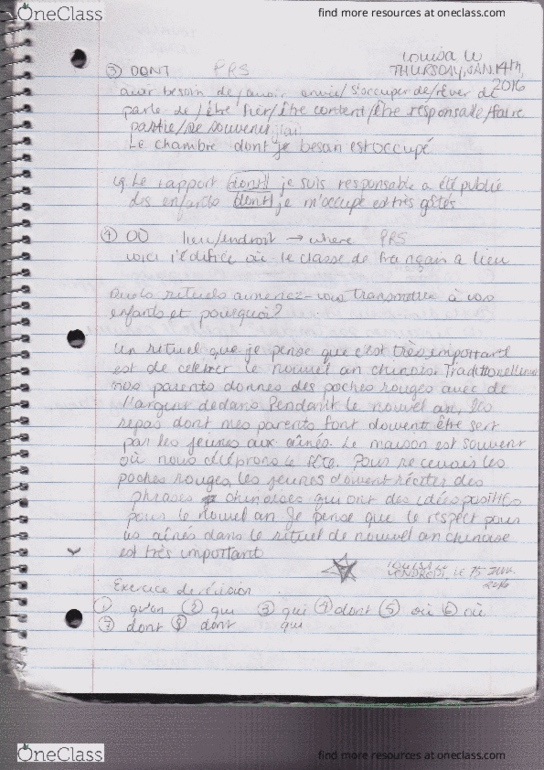 OneClass
find more resources at oneclass.com
Louisa W
③ DONT PRS
THURSDAY, JAN. 14th,
2016
avoir besoin de/avoir envie/s'occuper de/rêver de
parle de/être fier/être content/être responsable/faire
partie/se souvenir
Le chambre dont je besoin est occupé
Le rapport dont je suis responsable a été publié
des enfants dont je m'occupe est très gâtés
④ OÙ lieu/endroit → where PRS
voici l'édifice où le classe de français a lieu
Quels rituels aimeriez-vous transmettre à vos
enfants et pourquoi?
Un rituel que je pense que c'est très important
est de célébrer le nouvel an chinois. Traditionellement
nos parents donnes des poches rouges avec de
l'argent dedans. Pendant le nouvel an, les
repas dont mes parents font doivent être sert
par les jeunes aux aînés. Le maison est souvent
où nous célébrons le fête. Pour recevoir les
poches rouges, les jeunes doivent réciter des
phrases chinoises qui ont des idées positifs
pour le nouvel an. Je pense que le respect pour
les aînés dans le rituel de nouvel an chinoise
est très important
VENDREDI, LE 15
2016
Exercice de révision
① qu'on ② qui ③ qui ④ dont ⑤ où ⑥ où
⑦ dont ⑧ dont qui
OneClass
find more resources at oneclass.com